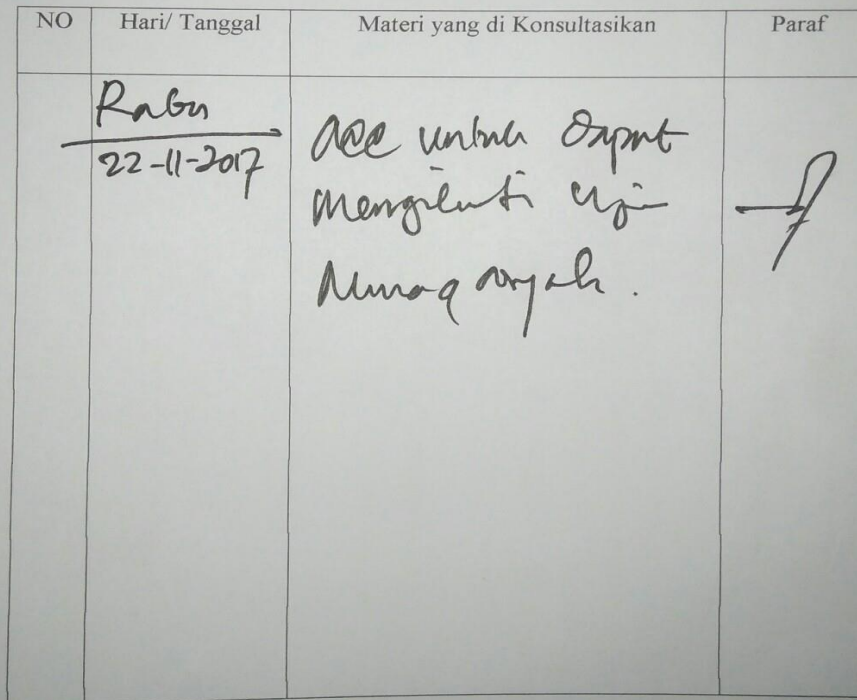 NO Hari/ Tanggal Materi yang di Konsultasikan Paraf
Rabu
22-11-2017
acc untuk dapat
mengikuti ujin
Munaqosyah.